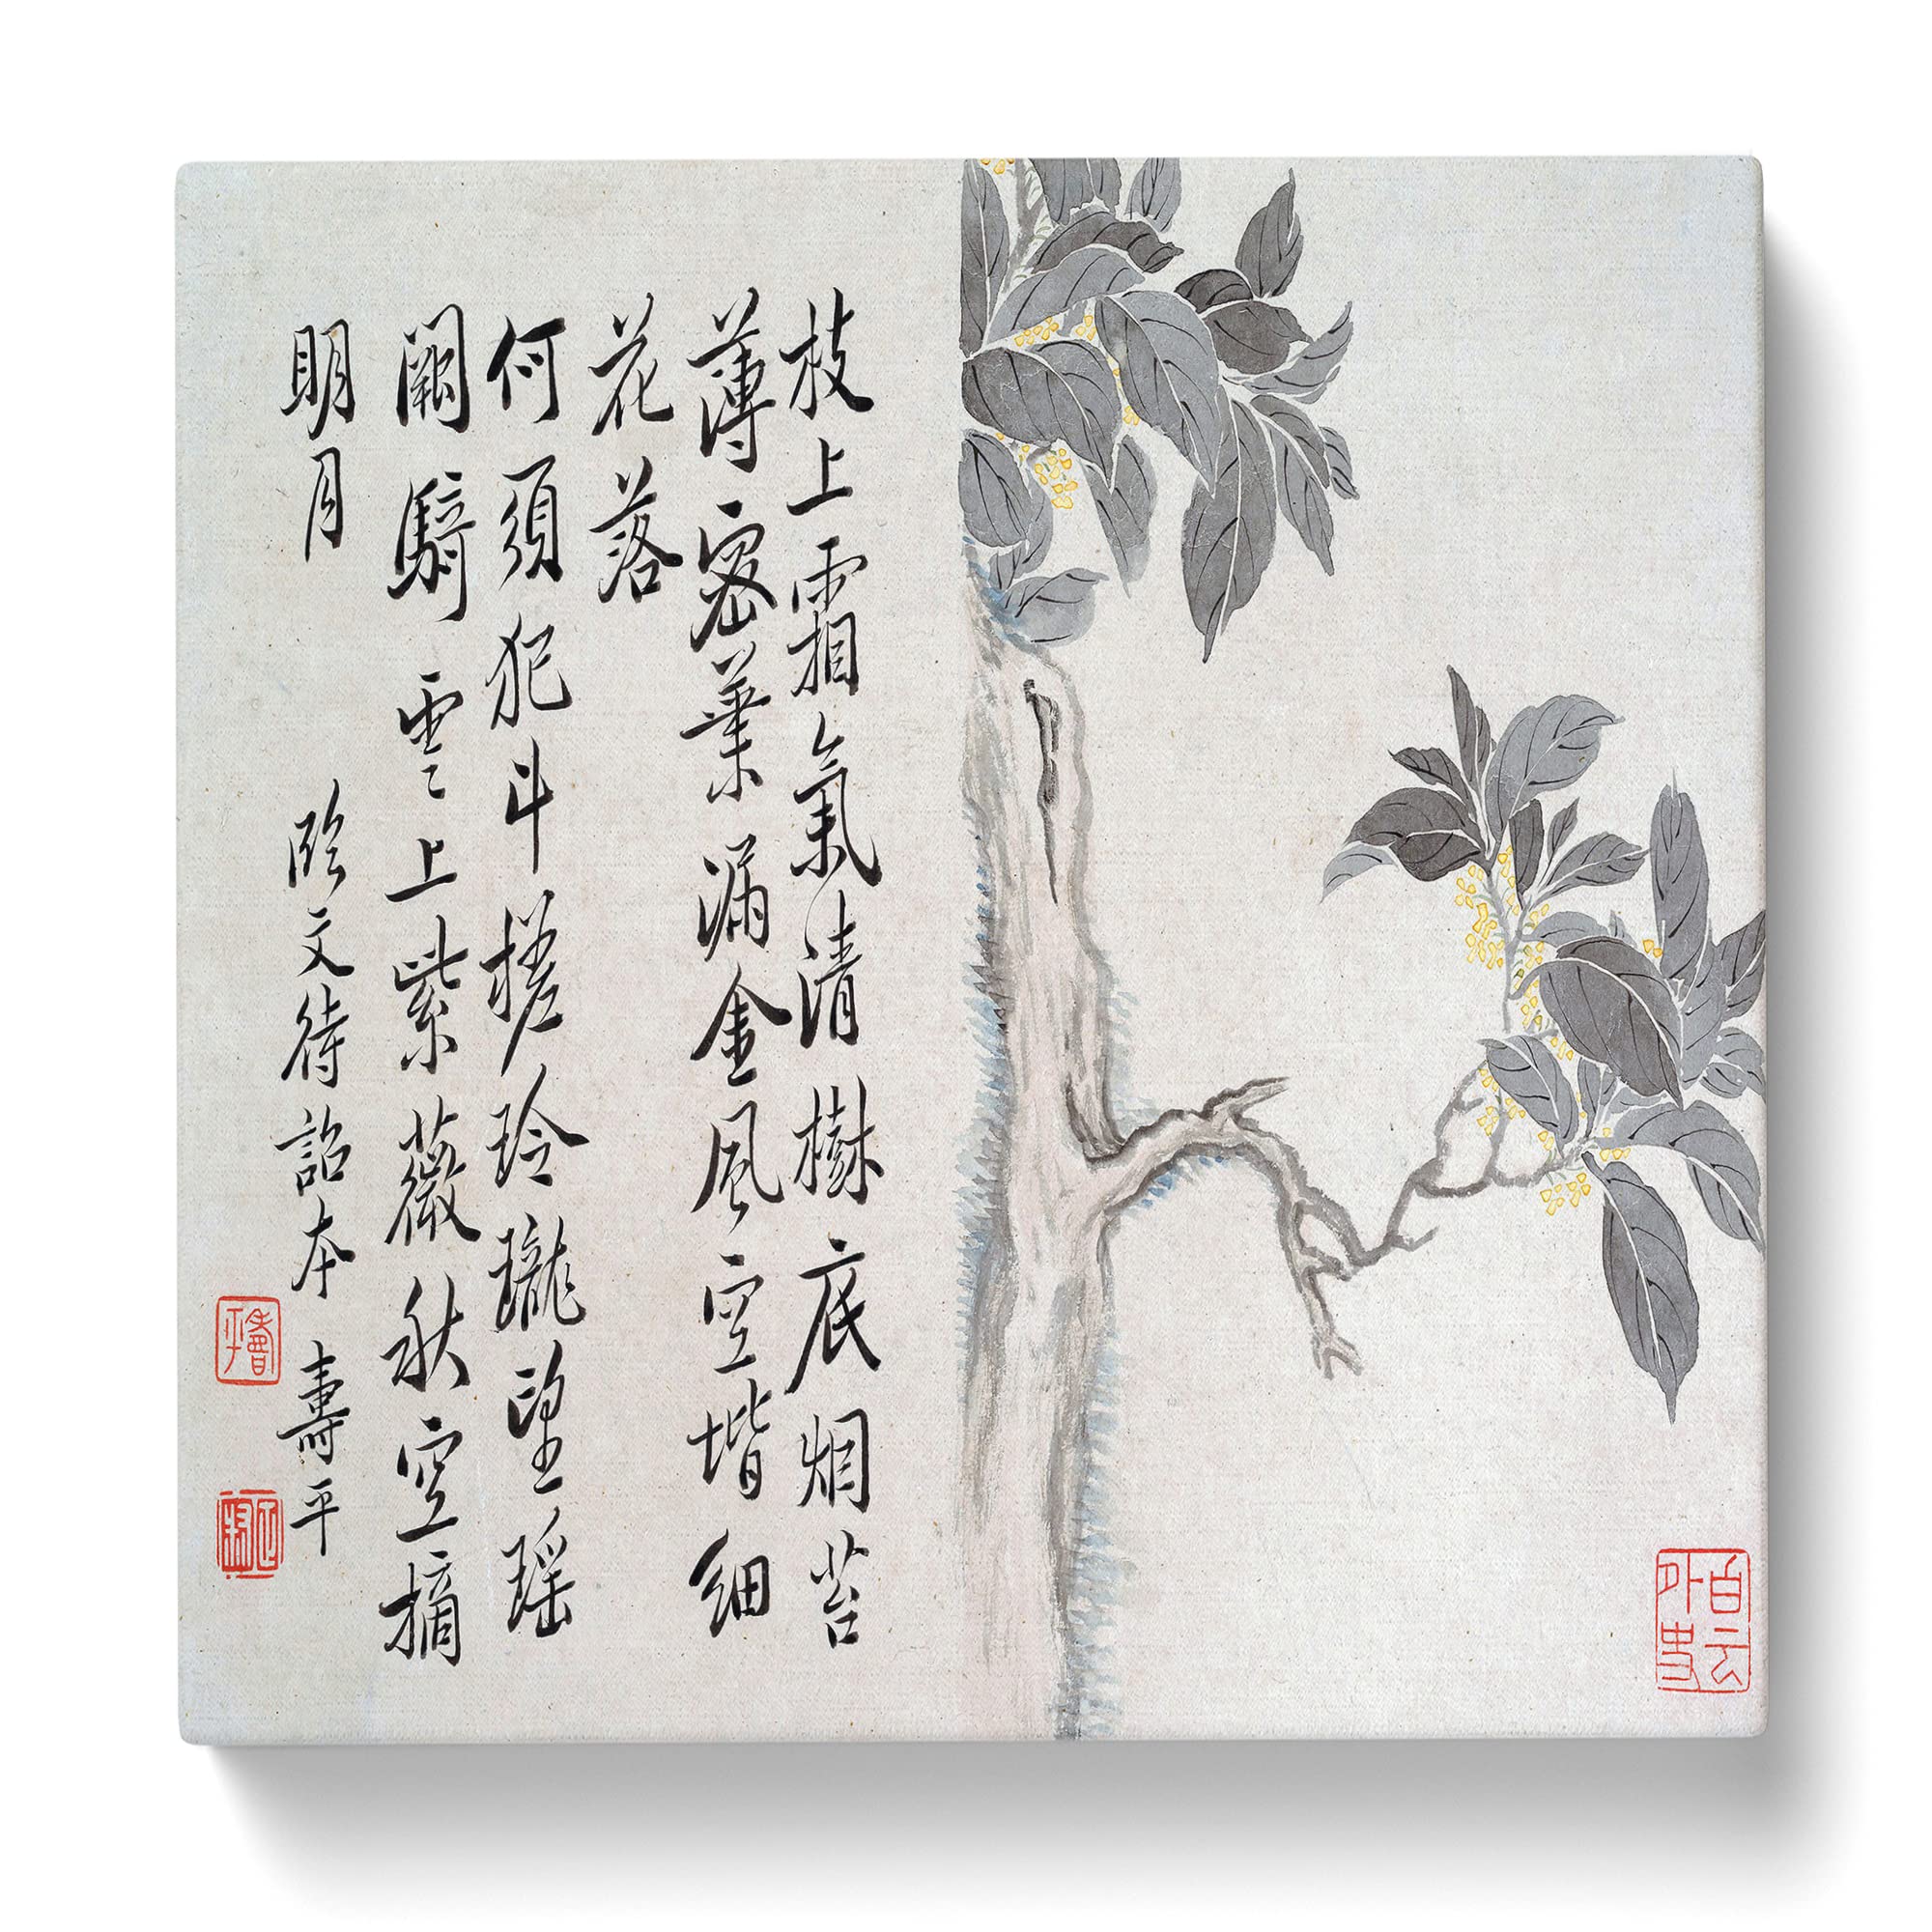 枝上霜氣清樹底烟苔
薄密葉漏金風空堦細
花落
何須犯斗槎玲瓏望瑶
闕騎雲雲上紫薇秋空摘
明月
臨文待詔本 壽平
白云外史